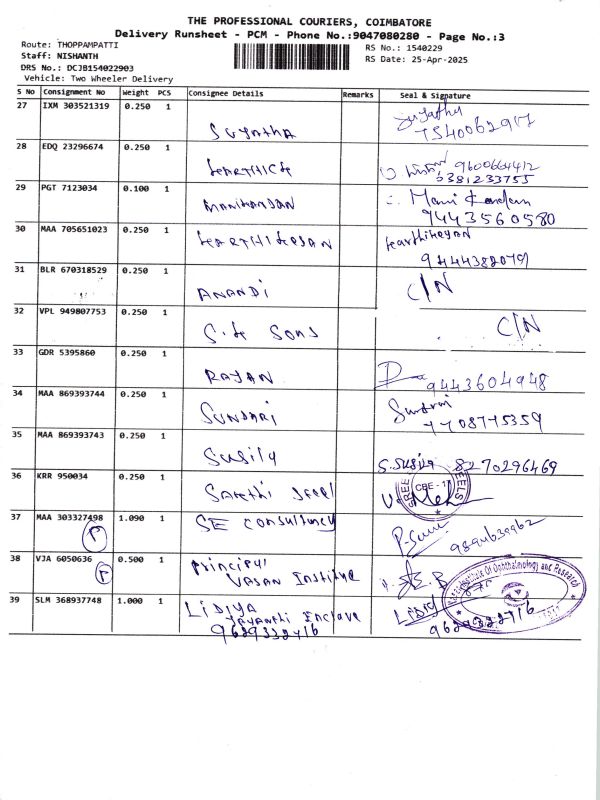 THE PROFESSIONAL COURIERS, COIMBATORE
Delivery Runsheet - PCM - Phone No.:9047080280 - Page No.:3
Route: THOPPAMPATTI
RS No.: 1540229
Staff: NISHANTH
RS Date: 25-Apr-2025
DRS No.: DCJB154022903
Vehicle: Two Wheeler Delivery
S No Consignment No Weight PCS Consignee Details Remarks Seal & Signature
27 IXM 303521319 0.250 1
Sujatha 7540062917
28 EDQ 23296674 0.250 1
KARTHICK 9600664412
6381233755
29 PGT 7123034 0.100 1
MANIKANDAN Manikandan
9443560580
30 MAA 705651023 0.250 1
KARTHIKEYAN Karthikeyan
9444382079
31 BLR 670318529 0.250 1
ANANDI C/N
32 VPL 949807753 0.250 1
S.K SONS C/N
33 GDR 5395860 0.250 1
RAJAN 9443604948
34 MAA 869393744 0.250 1
SUNDARI
7708775359
35 MAA 869393743 0.250 1
SUSILA S.Susila 8270296469
36 KRR 950034 0.250 1
SAKTHI Steel
SREE STEELS CBE - 1
37 MAA 303327498 1.090 1
SE Consultancy
P 9894639962
38 VJA 6050636 0.500 1
Principal
VASAN Institute
P
Institute Of Ophthalmology and Research
39 SLM 368937748 1.000 1
LIDIYA Lidiy
Jayanthi Enclave
9629322716 9629322716